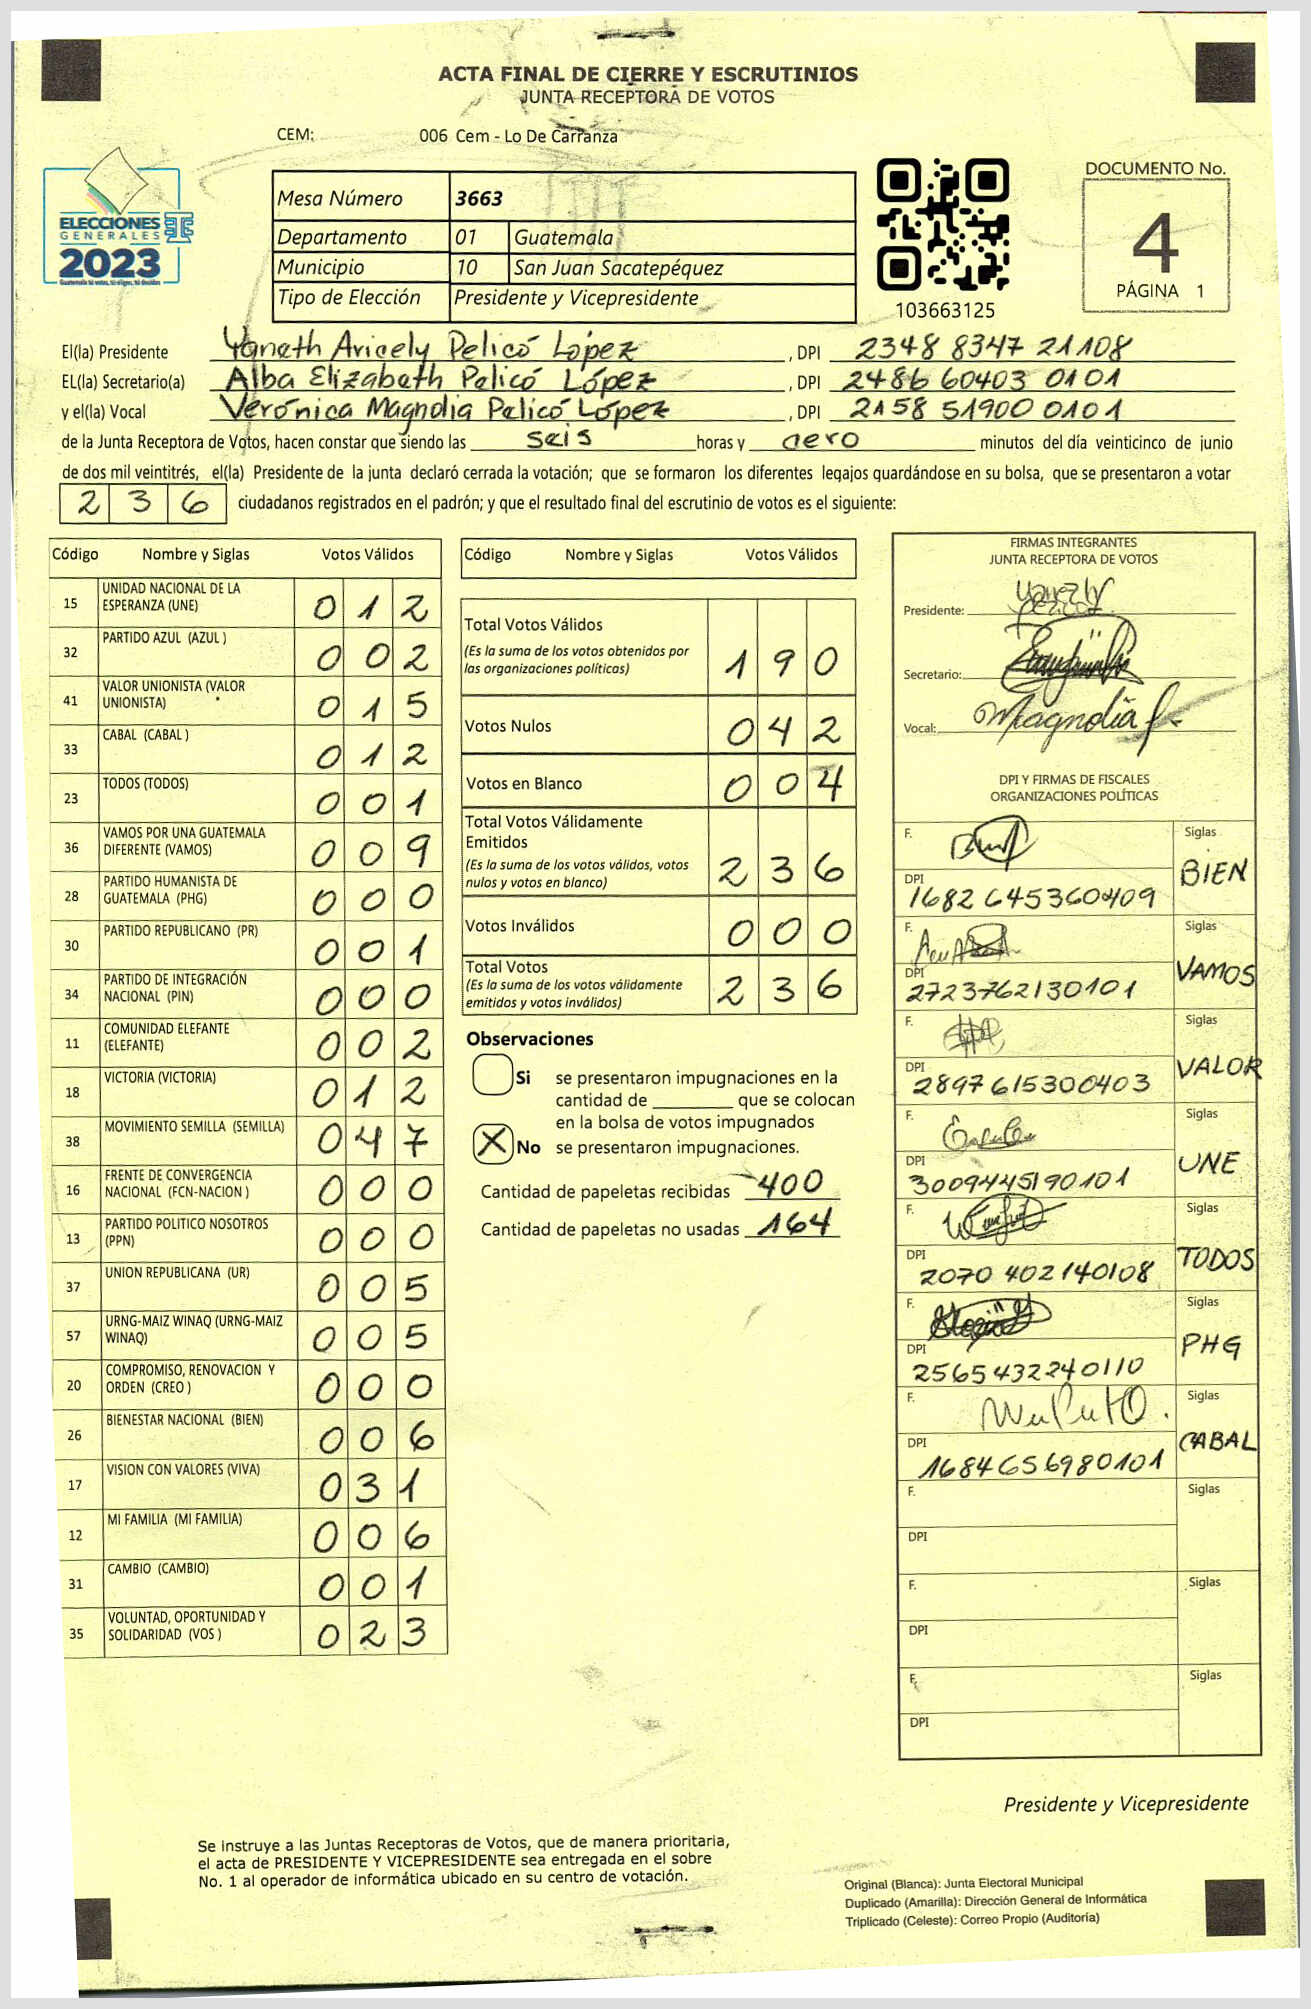 ACTA FINAL DE CIERRE Y ESCRUTINIOS
JUNTA RECEPTORA DE VOTOS
CEM: 006 Cem - Lo De Carranza
ELECCIONES
GENERALES
2023
Guatemala tú votas, tú eliges, tú decides
Mesa Número 3663
Departamento 01 Guatemala
Municipio 10 San Juan Sacatepéquez
Tipo de Elección Presidente y Vicepresidente
103663125
DOCUMENTO No.
4
PÁGINA 1
El(la) Presidente Yaneth Aricely Pelicó López, DPI 2348 8347 21108
EL(la) Secretario(a) Alba Elizabeth Pelicó López, DPI 2486 60403 0101
y el(la) Vocal Verónica Magnolia Pelicó López, DPI 2158 51900 0101
de la Junta Receptora de Votos, hacen constar que siendo las seis horas y cero minutos del día veinticinco de junio
de dos mil veintitrés, el(la) Presidente de la junta declaró cerrada la votación; que se formaron los diferentes legajos guardándose en su bolsa, que se presentaron a votar
236 ciudadanos registrados en el padrón; y que el resultado final del escrutinio de votos es el siguiente:
Código Nombre y Siglas Votos Válidos
15 UNIDAD NACIONAL DE LA ESPERANZA (UNE) 012
32 PARTIDO AZUL (AZUL ) 002
41 VALOR UNIONISTA (VALOR UNIONISTA) 015
33 CABAL (CABAL ) 012
23 TODOS (TODOS) 001
36 VAMOS POR UNA GUATEMALA DIFERENTE (VAMOS) 009
28 PARTIDO HUMANISTA DE GUATEMALA (PHG) 000
30 PARTIDO REPUBLICANO (PR) 001
34 PARTIDO DE INTEGRACIÓN NACIONAL (PIN) 000
11 COMUNIDAD ELEFANTE (ELEFANTE) 002
18 VICTORIA (VICTORIA) 012
38 MOVIMIENTO SEMILLA (SEMILLA) 047
16 FRENTE DE CONVERGENCIA NACIONAL (FCN-NACION ) 000
13 PARTIDO POLITICO NOSOTROS (PPN) 000
37 UNION REPUBLICANA (UR) 005
57 URNG-MAIZ WINAQ (URNG-MAIZ WINAQ) 005
20 COMPROMISO, RENOVACION Y ORDEN (CREO ) 000
26 BIENESTAR NACIONAL (BIEN) 006
17 VISION CON VALORES (VIVA) 031
12 MI FAMILIA (MI FAMILIA) 006
31 CAMBIO (CAMBIO) 001
35 VOLUNTAD, OPORTUNIDAD Y SOLIDARIDAD (VOS ) 023
Código Nombre y Siglas Votos Válidos
Total Votos Válidos 190
(Es la suma de los votos obtenidos por
las organizaciones políticas)
Votos Nulos 042
Votos en Blanco 004
Total Votos Válidamente
Emitidos 236
(Es la suma de los votos válidos, votos
nulos y votos en blanco)
Votos Inválidos 000
Total Votos 236
(Es la suma de los votos válidamente
emitidos y votos inválidos)
Observaciones
Si se presentaron impugnaciones en la
cantidad de ________ que se colocan
en la bolsa de votos impugnados
X No se presentaron impugnaciones.
Cantidad de papeletas recibidas 400
Cantidad de papeletas no usadas 164
FIRMAS INTEGRANTES
JUNTA RECEPTORA DE VOTOS
Presidente:
Secretario:
Vocal: Magnolia P.
DPI Y FIRMAS DE FISCALES
ORGANIZACIONES POLÍTICAS
F. Siglas BIEN
DPI 1682 645360409
F. Siglas VAMOS
DPI 2723762130101
F. Siglas VALOR
DPI 2897615300403
F. Siglas UNE
DPI 3009445190101
F. Siglas TODOS
DPI 2070 402140108
F. Siglas PHG
DPI 2565432240110
F. Siglas CABAL
DPI 1684656980101
F. Siglas
DPI
F. Siglas
DPI
F. Siglas
DPI
Presidente y Vicepresidente
Se instruye a las Juntas Receptoras de Votos, que de manera prioritaria,
el acta de PRESIDENTE Y VICEPRESIDENTE sea entregada en el sobre
No. 1 al operador de informática ubicado en su centro de votación.
Original (Blanca): Junta Electoral Municipal
Duplicado (Amarilla): Dirección General de Informática
Triplicado (Celeste): Correo Propio (Auditoría)